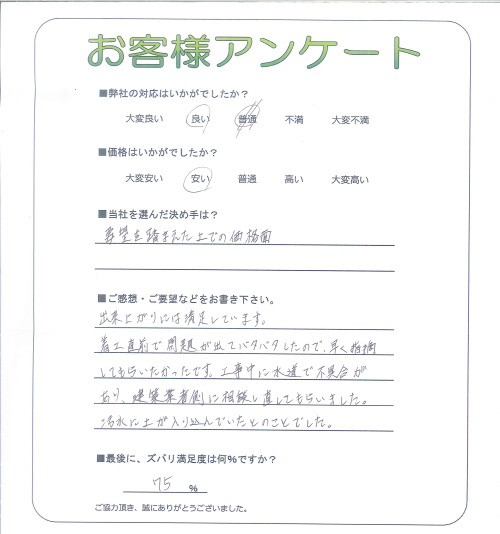 お客様アンケート
■弊社の対応はいかがでしたか？
大変良い 良い 普通 不満 大変不満
■価格はいかがでしたか？
大変安い 安い 普通 高い 大変高い
■当社を選んだ決め手は？
要望を踏まえた上での価格面
■ご感想・ご要望などをお書き下さい。
出来上がりには満足しています。
着工直前で問題が出てバタバタしたので、早く指摘
してもらいたかったです。工事中に水道で不具合が
あり、建築業者側に相談し直してもらいました。
汚水に土が入り込んでいたとのことでした。
■最後に、ズバリ満足度は何%ですか？
75 %
ご協力頂き、誠にありがとうございました。